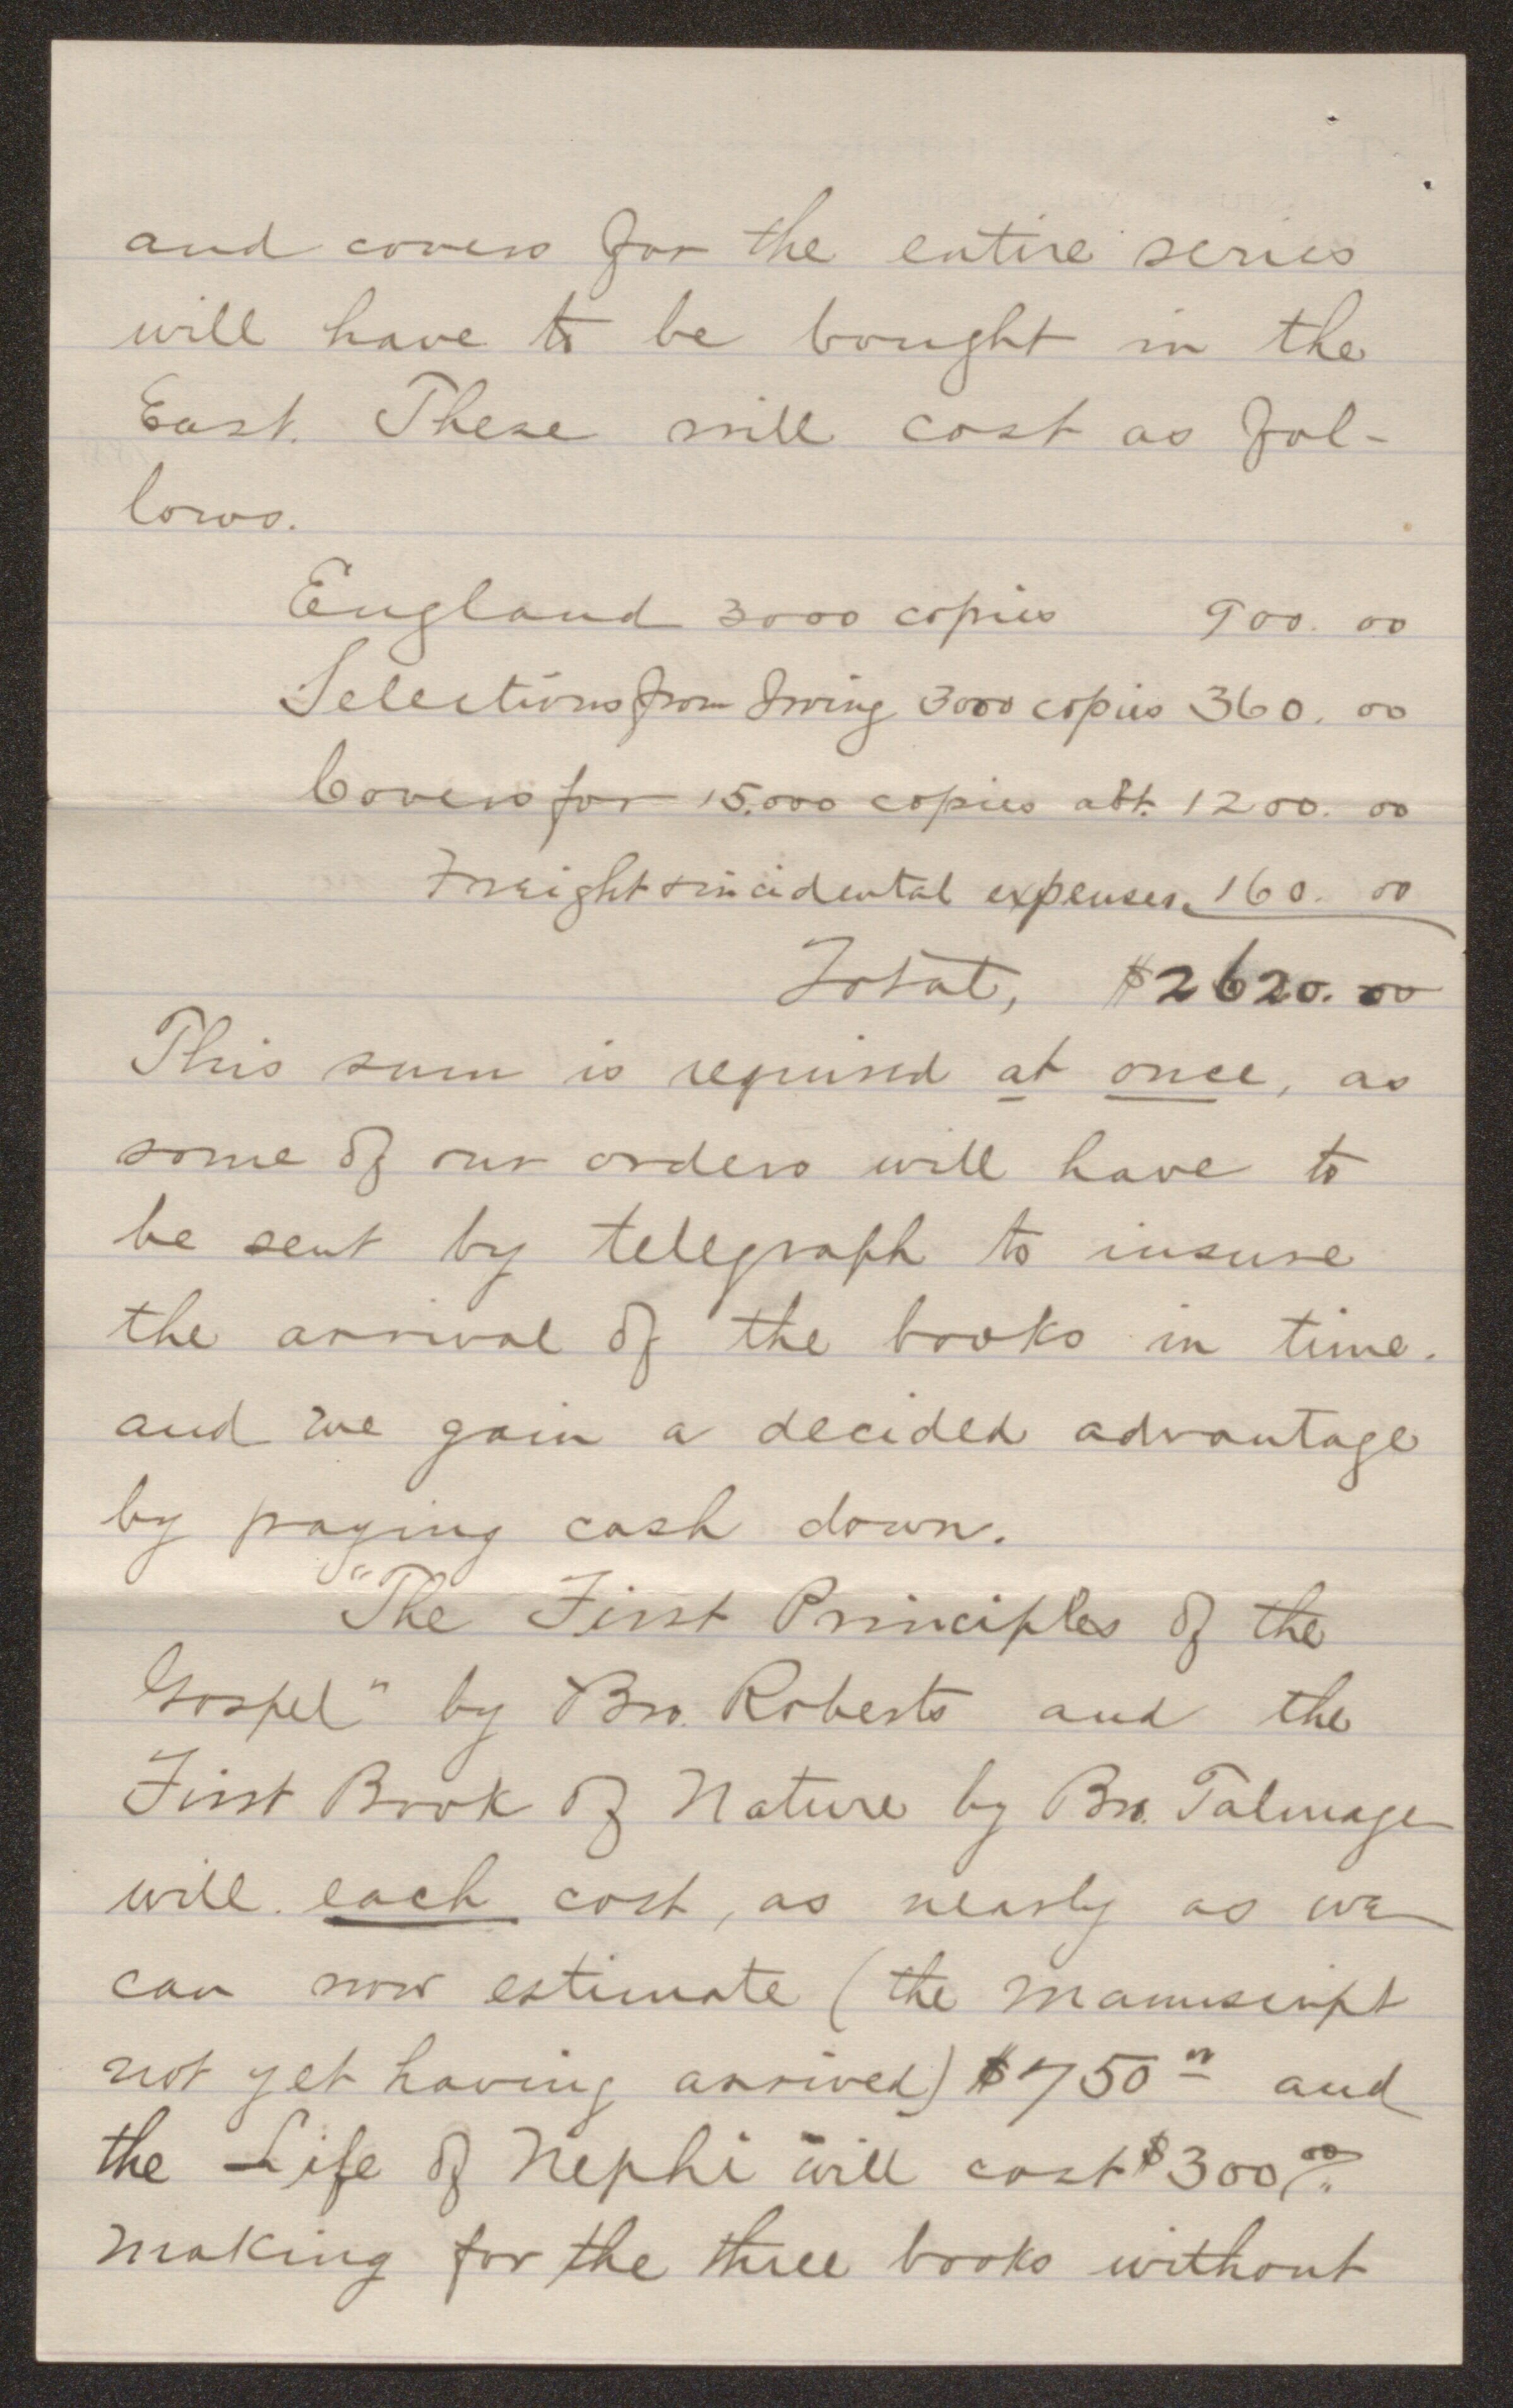 and covers for the entire series
will have to be bought in the
East. These will cost as fol-
lows.
England 3000 copies 900.00
Selections from Irving 3000 copies 360.00
Covers for 15.000 copies abt. 1200.00
Freight & incidental expenses. 160.00
Total, $2620.00
This sum is required at once, as
some of our orders will have to
be sent by telegraph to insure
the arrival of the books in time.
and we gain a decided advantage
by paying cash down.
"The First Principles of the
Gospel" by Bro. Roberts and the
First Book of Nature by Bro. Talmage
will each cost, as nearly as we
can now estimate (the manuscript
not yet having arrived) $750 00 and
the Life of Nephi will cost $300 00.
making for the three books without